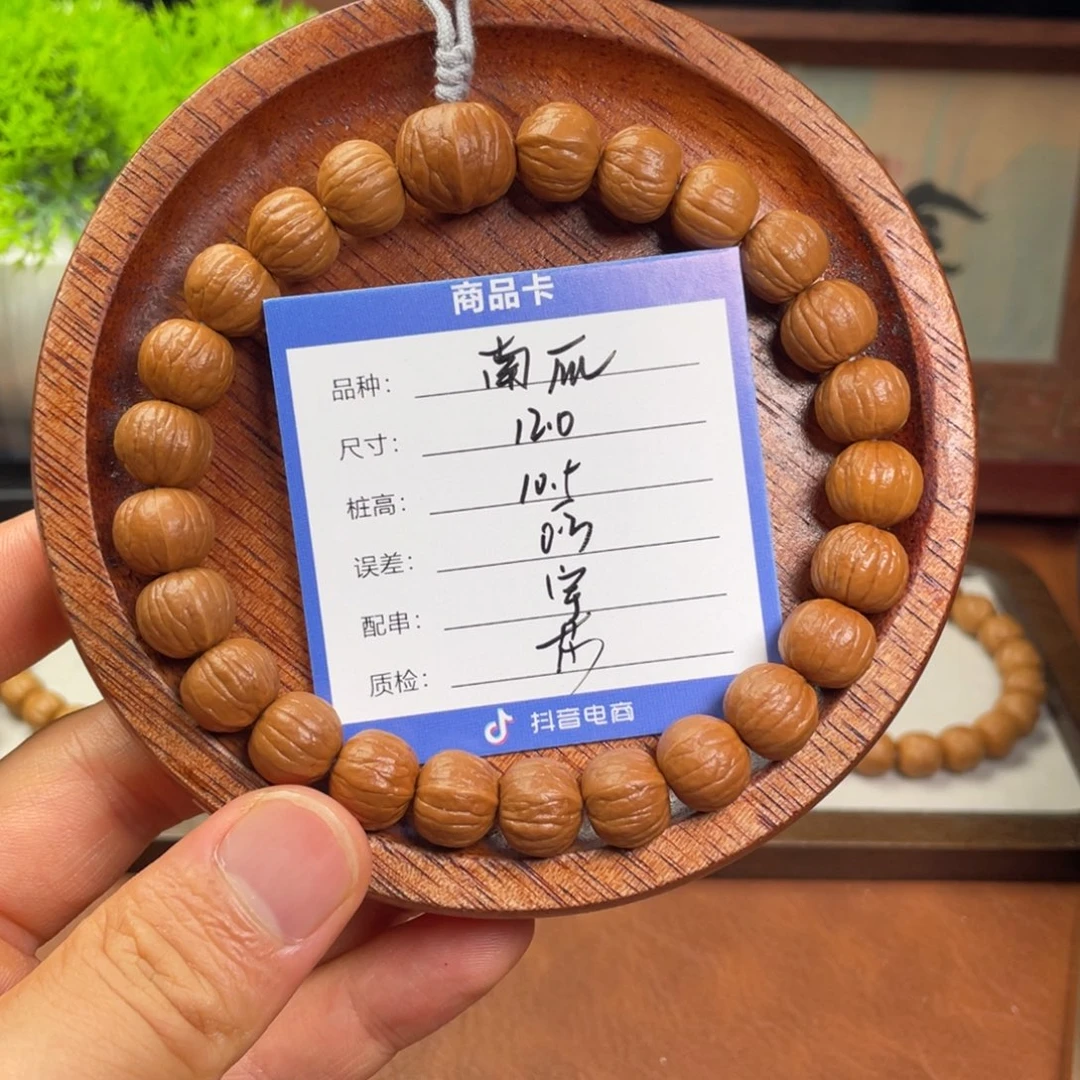 商品卡
品种: 南瓜
尺寸: 12.0
桩高: 10.5
误差: 0.3
配串: 宇
质检:
抖音电商